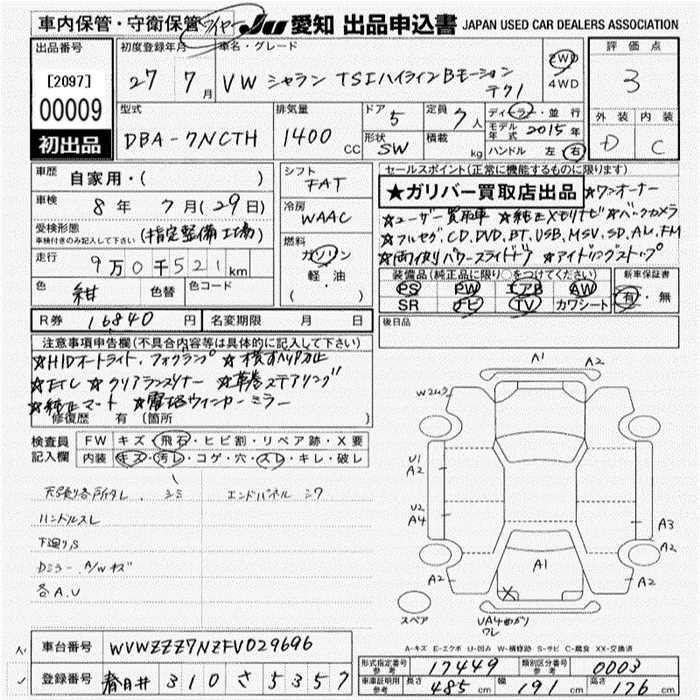 車内保管・守衛保管 ワイヤー JU 愛知 出品申込書 JAPAN USED CAR DEALERS ASSOCIATION
出品番号 [2097] 00009 初出品
初度登録年月 27年 7月
車名・グレード VW シャラン TSIハイラインBモーション テクノ
2WD 4WD
評価点 3
外装 D 内装 C
型式 DBA-7NCTH
排気量 1400 CC
ドア 5 定員 7人
形状 SW 積載 kg
ディーラー・並行
モデル年式 2015年
ハンドル 左 右
車歴 自家用・( )
車検 8年 7月(29日)
受検形態 車検付きのみ記入して下さい (指定整備工場)
走行 9万0千521km
色 紺 色替 色コード
シフト FAT
冷房 WAAC
燃料 ガソリン 軽・油
セールスポイント(正常に機能するものに限ります)
★ガリバー買取店出品 ☆ワンオーナー
☆ユーザー買取車 ☆純正メモリナビ ☆バックカメラ
☆フルセグ.CD.DVD.BT.USB.MSV.SD.AM.FM
☆両側パワースライドドア ☆アイドリングストップ
装備品(純正品に限り○をつけてください) 新車保証書
PS PW エアB AW 有・無
SR ナビ TV カワシート
R券 16840円 名変期限 月 日
後日品
注意事項申告欄(不具合内容等は具体的に記入して下さい)
☆HIDオートライト.フォグランプ ☆横すべり防止
☆ETC ☆クリアランスソナー ☆革巻ステアリング
☆純正マット ☆電格ウインカーミラー
修復歴 有(箇所
検査員記入欄 FW キズ・飛石・ヒビ割・リペア跡・X要
内装 キズ・汚レ・コゲ・穴・スレ・キレ・破レ
天張り各所タレ. シミ エンドパネル シワ
ハンドルスレ
下廻りS
Dミラー.A/Wキズ
各A.U
A1 A2
W2
U1
A2
U2
A4
A3
A1
A2 A2
スペア
UA4曲がり
ワレ
A-キズ E-エクボ U-凹み W-補修跡 S-サビ C-腐食 XX-交換済
車台番号 WVWZZZ7NZFV029696
登録番号 春日井 310 さ 5357
形式指定番号 参考 17449 類別区分番号 参考 0003
車庫証明用 参考 長さ 485cm 幅 191cm 高さ 176cm